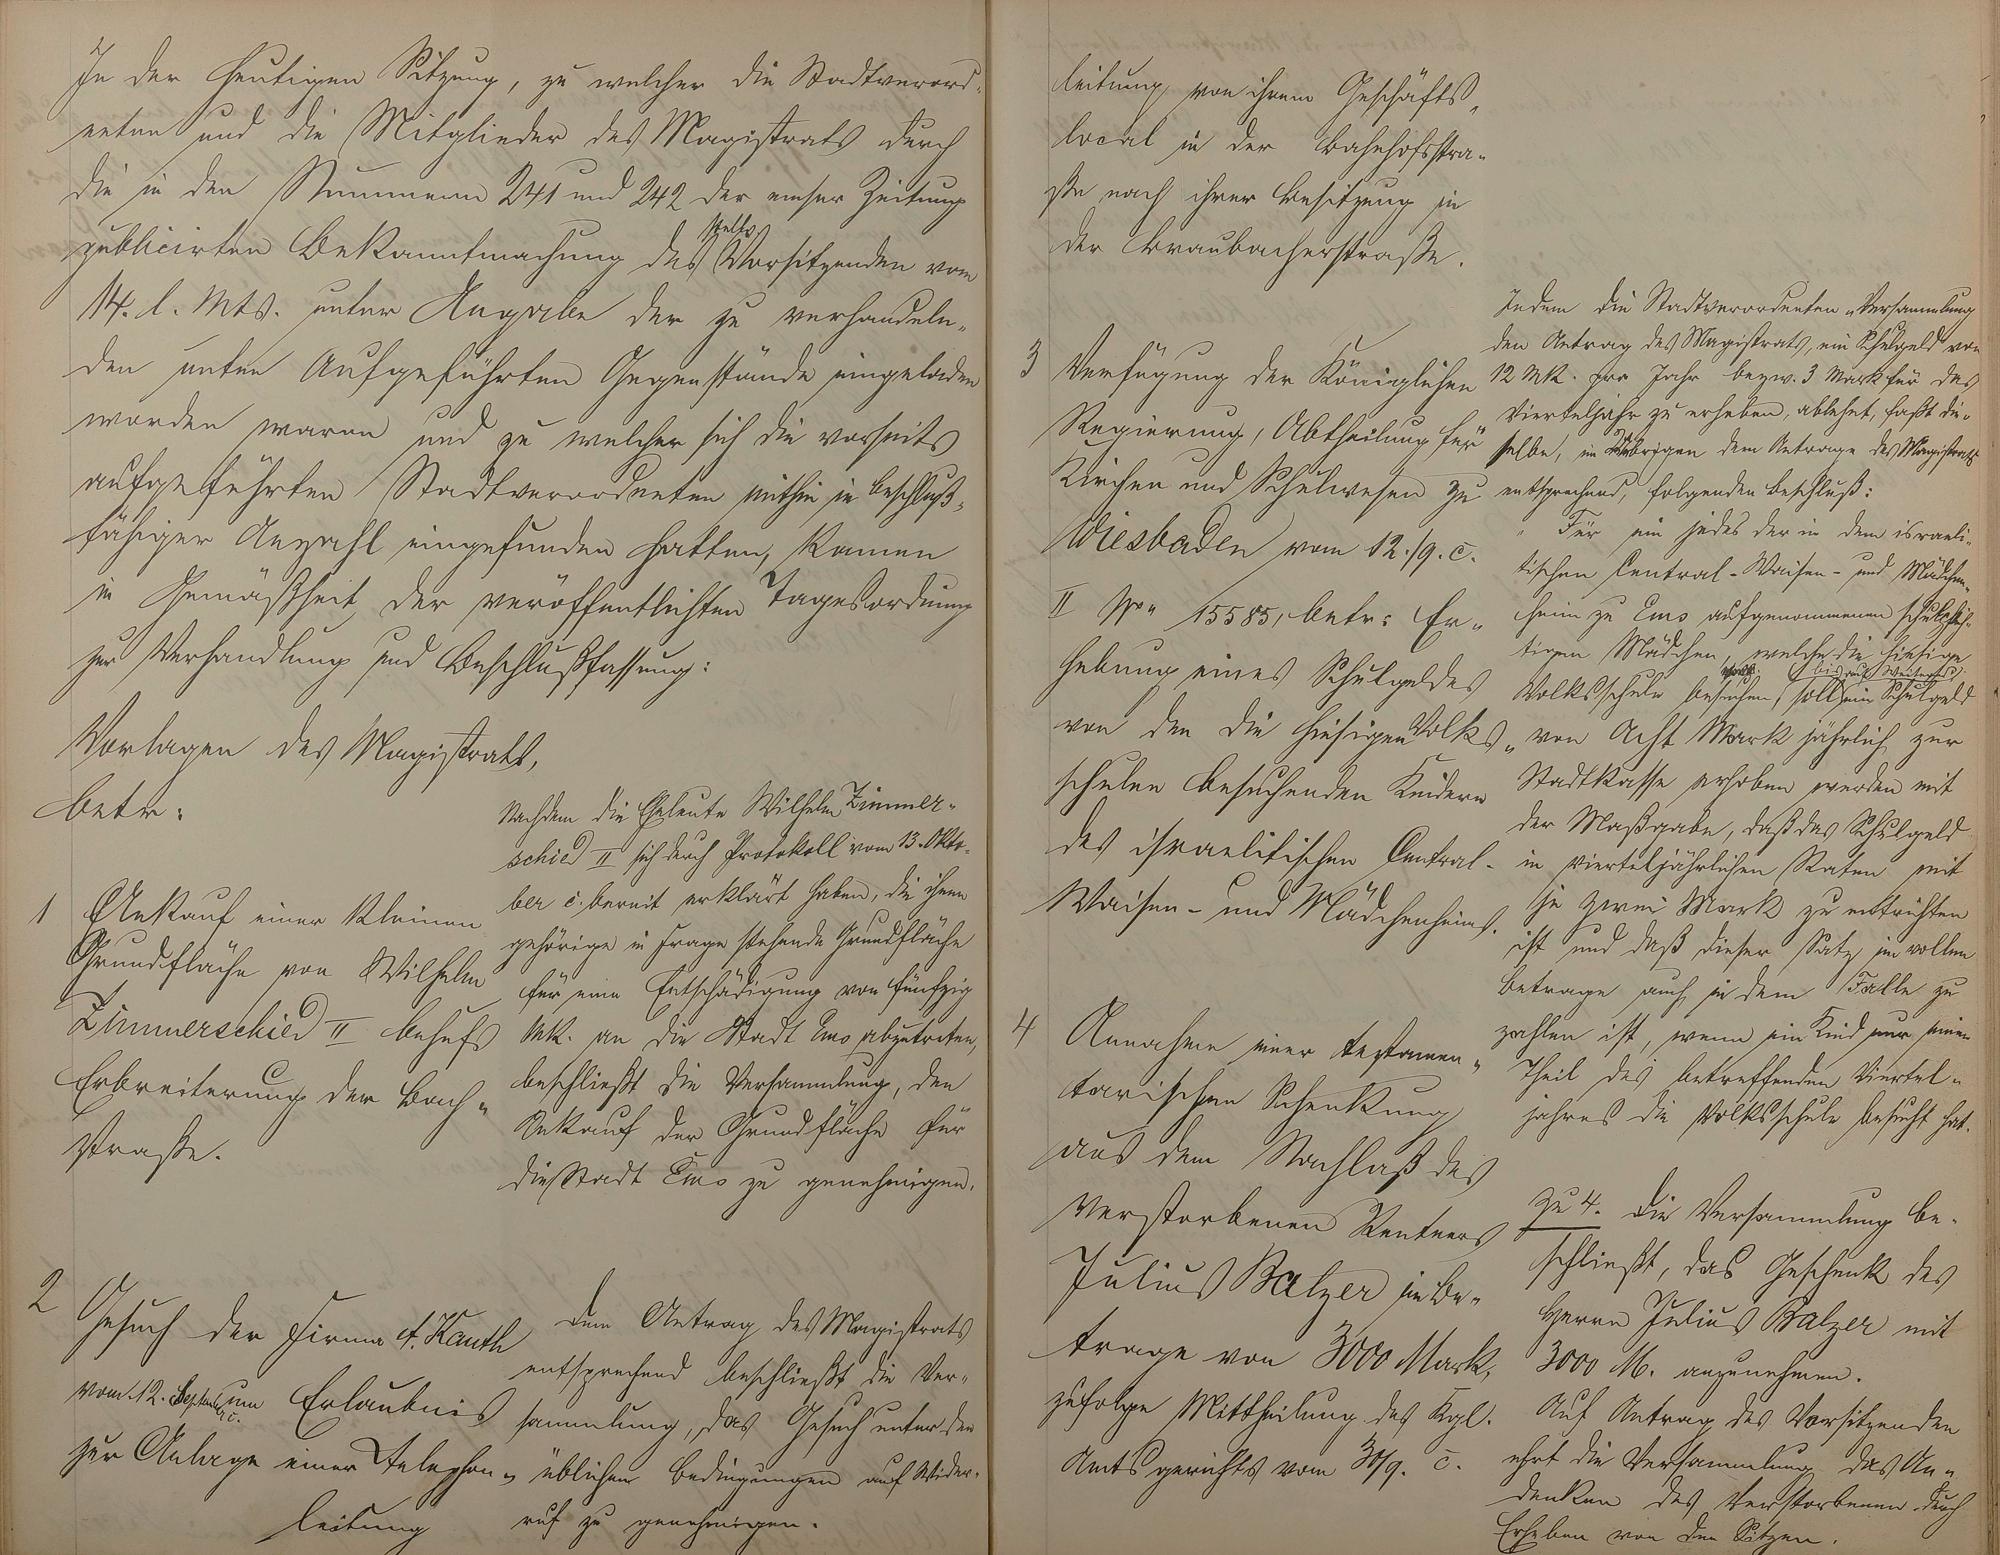 In der heutigen Sitzung, zu welcher die Stadtverord-
neten und die Mitglieder des Magistrats durch
die in den Nummern 241 und 242 der emser Zeitung
publicirten Bekanntmachung des stellv. Vorsitzenden vom
14. l. Mts. unter Angabe der zu verhandeln-
den unten aufgeführten Gegenstände eingeladen
worden waren und zu welcher sich die vorseits
aufgeführten Stadtverordneten mithin in beschluß-
fähiger Anzahl eingefunden hatten, kamen
in Gemäßheit der veröffentlichten Tagesordnung
zur Verhandlung und Beschlußfassung:
Vorlagen des Magistrats,
betr:
1 Ankauf einer kleinen
Grundfläche von Wilhelm
Zimmerschied II behufs
Erbreiterung der Bach-
straße.
Nachdem die Eheleute Wilhelm Zimmer-
schied II sich durch Protokoll vom 13. Okto-
ber c. bereit erklärt haben, die ihnen
gehörige in Frage stehende Grundfläche
für eine Entschädigung von fünfzig
Mk. an die Stadt Ems abzutreten,
beschließt die Versammlung, den
Ankauf der Grundfläche für
die Stadt Ems zu genehmigen.
2 Gesuch der Firma A. Kauth
vom 12. September c. um Erlaubnis
zur Anlage einer Telephon-
leitung
Dem Antrag des Magistrats
entsprechend beschließt die Ver-
sammlung, das Gesuch unter den
üblichen Bedingungen auf Wider-
ruf zu genehmigen.
leitung von ihrem Geschäfts-
local in der Bahnhofstra-
ße nach ihrer Besitzung in
der Braubacherstraße.
3 Verfügung der Königlichen
Regierung, Abtheilung für
Kirchen und Schulwesen zu
Wiesbaden vom 12./9. c.
II No 15585, betr: Er-
hebung eines Schulgeldes
von den die hiesigen Volks-
schulen besuchenden Kindern
des israelitischen Central-
Waisen- und Mädchenheims.
Indem die Stadtverordneten-Versammlung
den Antrag des Magistrats, ein Schulgeld von
12 Mk. pro Jahr bezw. 3 Mark für das
Vierteljahr zu erheben, ablehnt, faßt die-
selbe, im Übrigen dem Antrage des Magistrats
entsprechend, folgenden Beschluß:
" Für ein jedes der in dem israeli-
tischen Central-Waisen- und Mädchen-
heim zu Ems aufgenommenen schulpflich-
tigen Mädchen, welche die hiesige
Volksschule besuchen, soll bis auf Weiteres ein Schulgeld
von Acht Mark jährlich zur
Stadtkasse erhoben werden mit
der Maßgabe, daß das Schulgeld
in vierteljährlichen Raten mit
je zwei Mark zu entrichten
ist und daß dieser Satz im vollen
Betrage auch in dem Falle zu
zahlen ist, wenn ein Kind nur einen
Theil des betreffenden Viertel-
jahres die Volksschule besucht hat.
4 Annahme einer testamen-
tarischen Schenkung
aus dem Nachlaß des
verstorbenen Rentners
Julius Balzer im Be-
trage von 3000 Mark,
zufolge Mittheilung des Kgl.
Amtsgerichts vom 30/9. c.
Zu 4. Die Versammlung be-
schließt, das Geschenk des
Herrn Julius Balzer mit
3000 M. anzunehmen.
Auf Antrag des Vorsitzenden
ehrt die Versammlung das An-
denken des Verstorbenen durch
Erheben von den Sitzen.